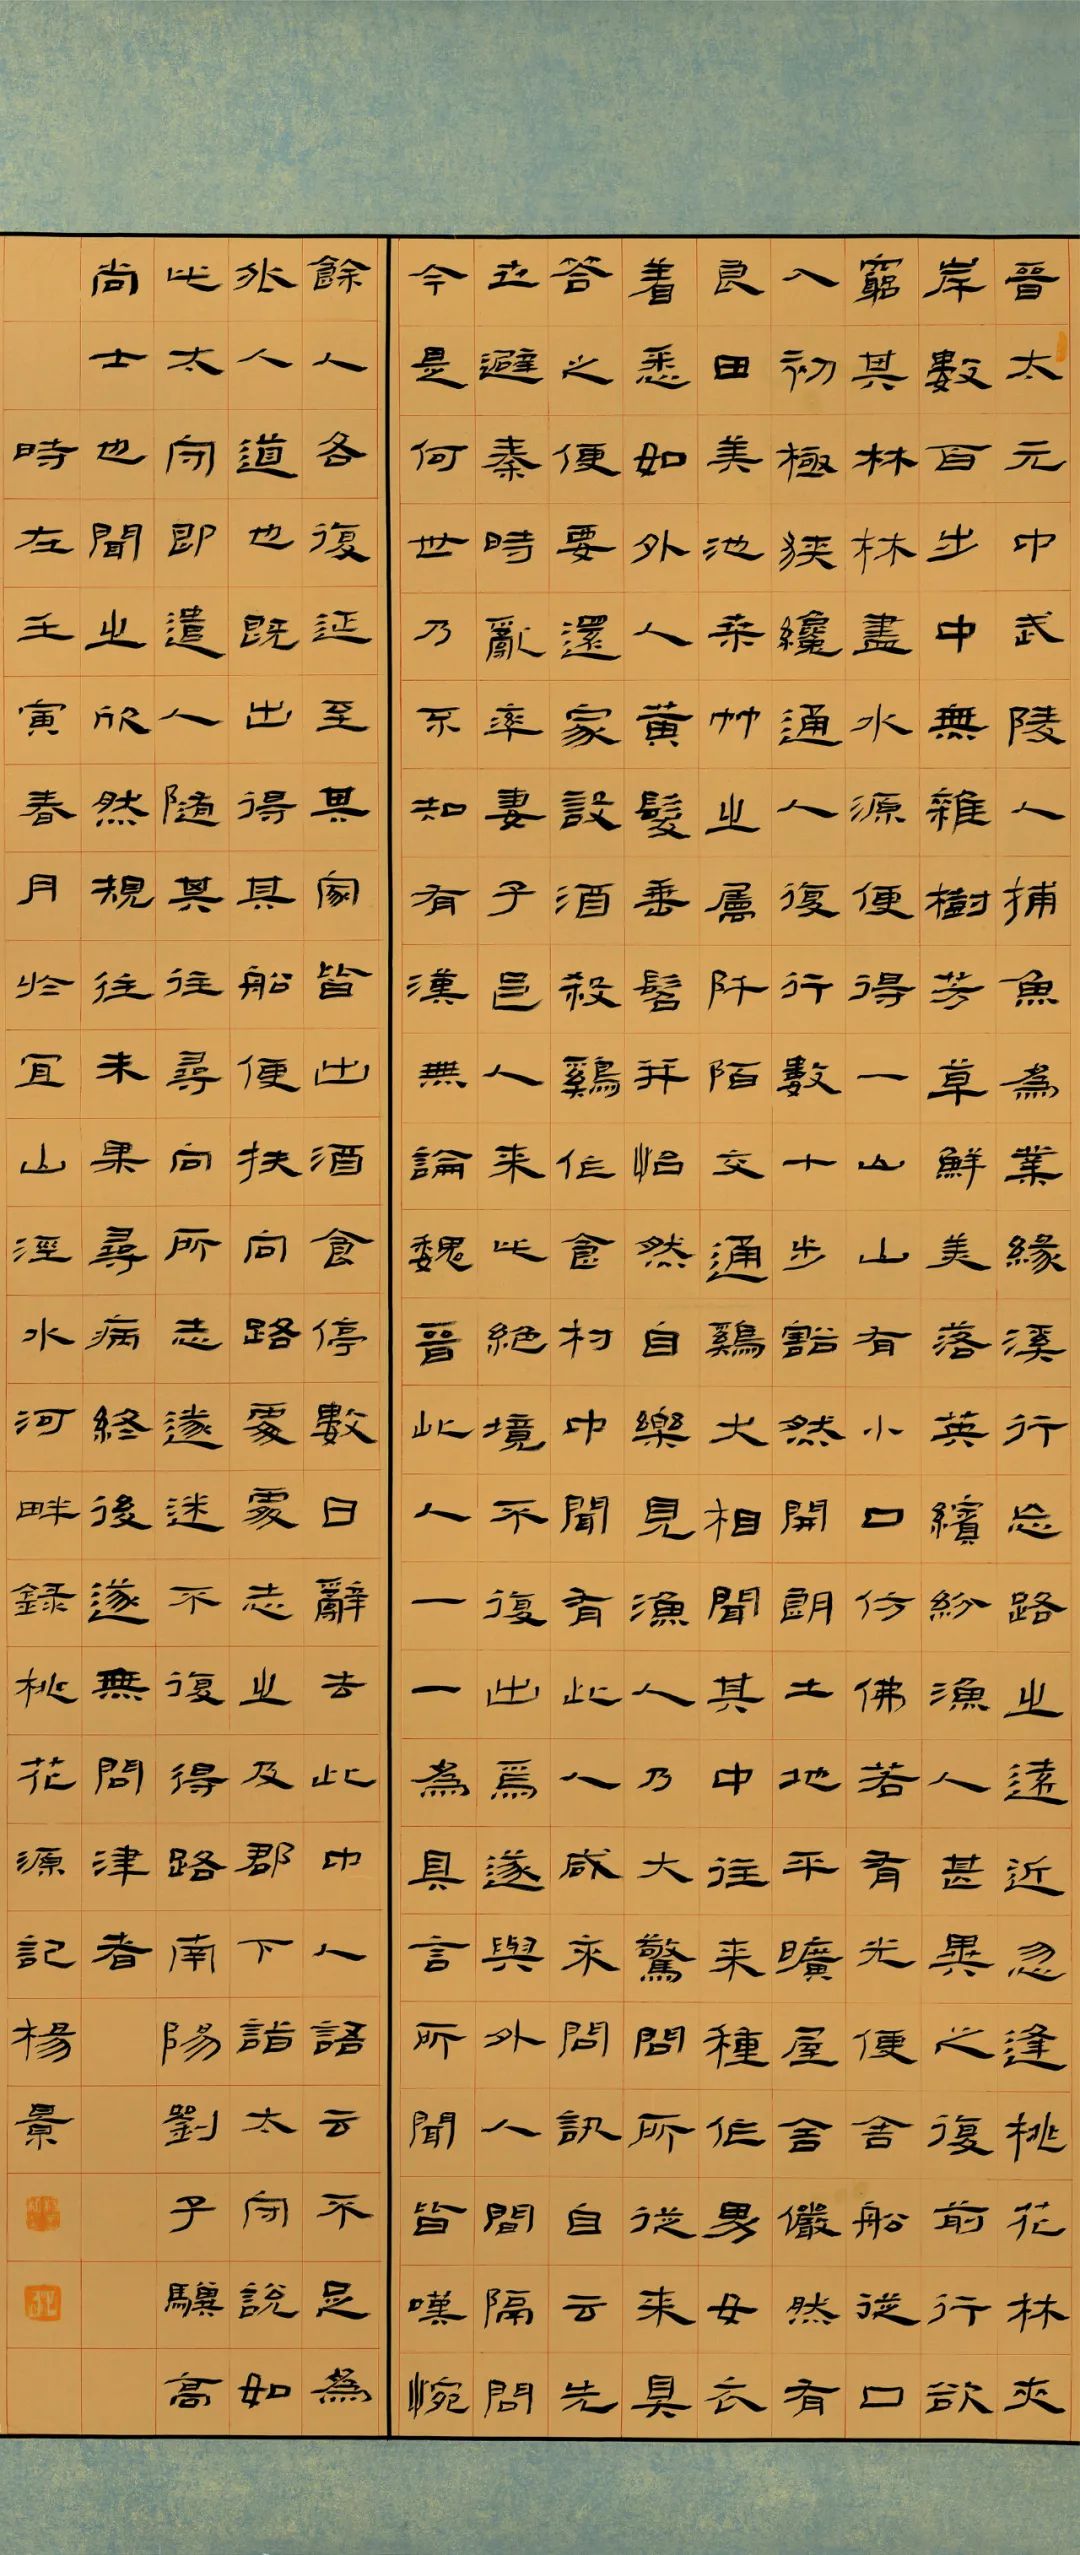 晉太元中武陵人捕魚為業緣溪行忘路之遠近忽逢桃花林夾
岸數百步中無雜樹芳草鮮美落英繽紛漁人甚異之復前行欲
窮其林林盡水源便得一山山有小口仿佛若有光便舍船從口
入初極狹纔通人復行數十步豁然開朗土地平曠屋舍儼然有
良田美池桑竹之屬阡陌交通鷄犬相聞其中往来種作男女衣
着悉如外人黃髮垂髫并怡然自樂見漁人乃大驚問所從来具
答之便要還家設酒殺鷄作食村中聞有此人咸来問訊自云先
世避秦時亂率妻子邑人来此絕境不復出焉遂與外人間隔問
今是何世乃不知有漢無論魏晉此人一一為具言所聞皆嘆惋
餘人各復延至其家皆出酒食停數日辭去此中人語云不足為
外人道也既出得其船便扶向路處處志之及郡下詣太守說如
此太守即遣人隨其往尋向所志遂迷不復得路南陽劉子驥高
尚士也聞之欣然規往未果尋病終後遂無問津者
時在壬寅春月於宜山涇水河畔録桃花源記楊景